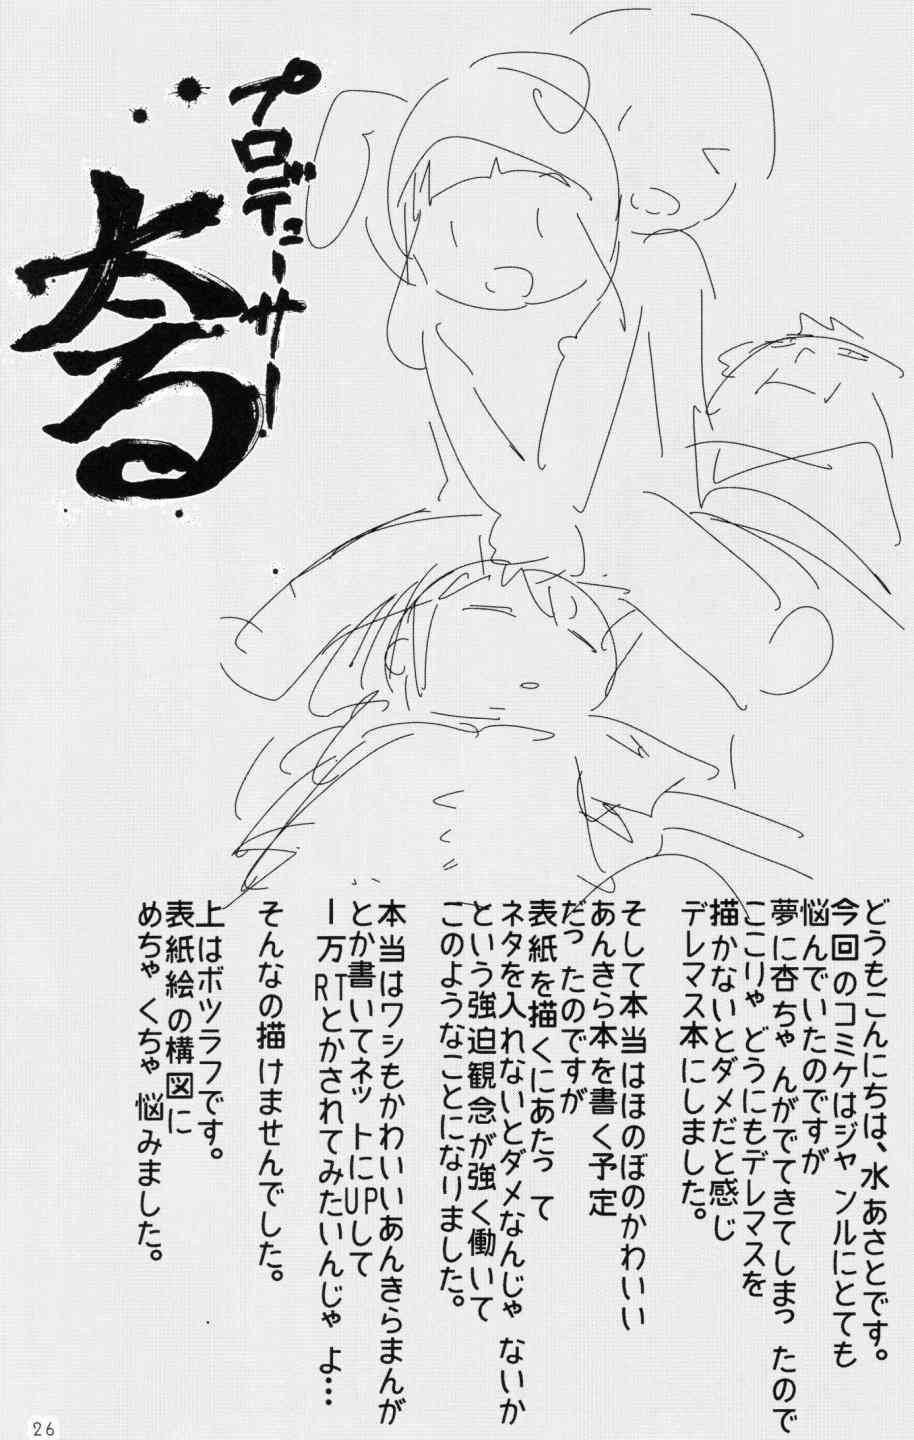 プロデューサー
どうもこんにちは、水あさとです。
今回のコミケはジャンルにとても
悩んでいたのですが
夢に杏ちゃんがでてきてしまったので
ここりゃどうにもデレマスを
描かないとダメだと感じ
デレマス本にしました。
そして本当はほのぼのかわいい
あんきら本を書く予定
だったのですが
表紙を描くにあたって
ネタを入れないとダメなんじゃないか
という強迫観念が強く働いて
このようなことになりました。
本当はワシもかわいいあんきらまんが
とか書いてネットにUPして
一万RTとかされてみたいんじゃよ…
そんなの描けませんでした。
上はボツラフです。
表紙絵の構図に
めちゃくちゃ悩みました。
26